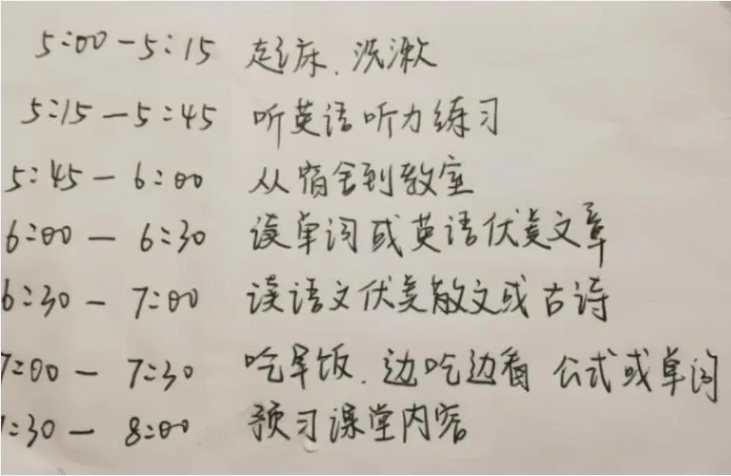 5:00-5:15 起床、洗漱
5:15-5:45 听英语听力练习
5:45-6:00 从宿舍到教室
6:00-6:30 读单词或英语优美文章
6:30-7:00 读语文优美散文或古诗
7:00-7:30 吃早饭、边吃边看 公式或单词
:30-8:00 预习课堂内容